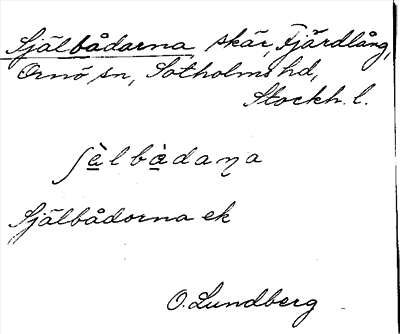 Själbådarna skär, Fjärdlång,
Ornö sn, Sotholms hd,
Stockh. l.
ʃὲlbὰdaꞃa
Själbådorna ek
O. Lundberg